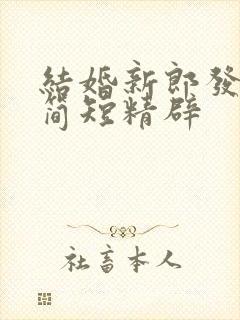 結婚新郎發
简短精辟
社畜本人